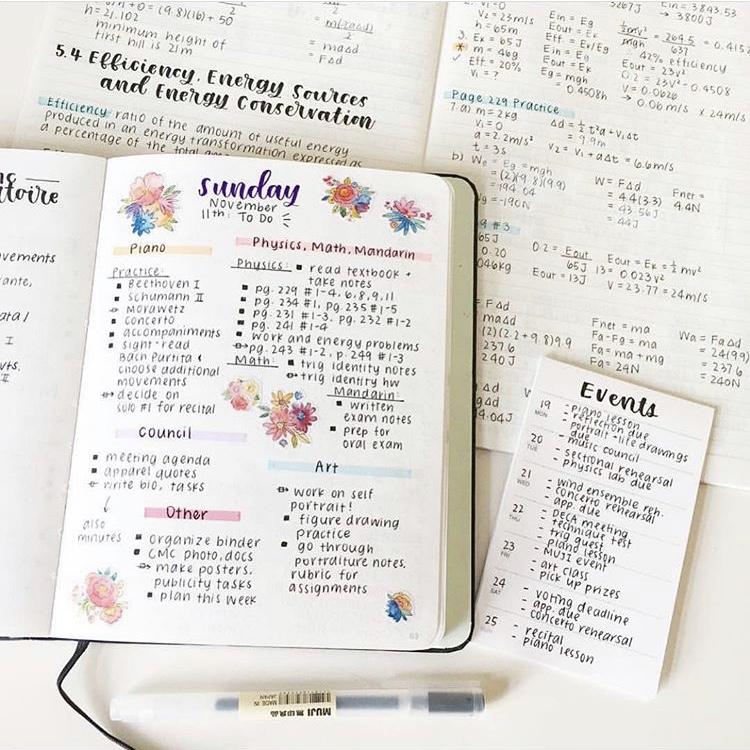 h = 21.102
minimum height of
first hill is 21m
= maΔd
= FΔd
5.4 Efficiency, Energy Sources
and Energy Conservation
Efficiency: ratio of the amount of useful energy
produced in an energy transformation expressed as
a percentage of the total
V2 = 23m/s
h = 65m
3. Ek = 65J
m = 46g
Eff. = 20%
Vi = ?
Ein = Eg
Eout = Ek
Eff. = Ek/Eg
Ein = Eg
Eout = Ek
Eg = mgh
= 0.4508h
Ein = 3843.53
→ 3800J
42% efficiency
Eout = 23V²
0.2 = 23V² ÷ 0.4508
V = 0.0626
→ 0.06 m/s × 24m/s
Page 229 Practice
7. a) m = 2kg
V1 = 0
a = 2.2m/s²
t = 3s
Δd = ½t²a + V1Δt
= 9.9m
V2 = V1 + aΔt = 6.6m/s
b) Wg = Eg = mgh
= (2)(9.8)(9.9)
= 194.04
= -190N
W = FΔd
= 4.4(3.3)
= 43.56J
= 44J
Fnet =
4.4N
#3
65J
0.20
046kg
0.2 = Eout
65J
Eout = 13J
Eout = Ek = ½mv²
13 = 0.023V²
V = 23.77 = 24m/s
= FΔd
maΔd
(2)(2.2+9.8)9.9
237.6
240J
Fnet = ma
Fa-Fg = ma
Fa = ma + mg
Fa = 24N
Wa = FaΔd
= 24(9.9)
= 237.6
= 240N
sunday
November
11th: To Do
Piano
Practice:
Beethoven I
Schumann II
Morawetz
concerto
accompaniments
sight-read
Bach Partita &
choose additional
movements
decide on
solo #1 for recital
Physics, Math, Mandarin
Physics:
read textbook +
take notes
pg. 229 #1-4, 6, 8, 9, 11
pg. 234 #1, pg. 235 #1-5
pg. 231 #1-3, pg. 232 #1-2
pg. 241 #1-4
work and energy problems
pg. 243 #1-2, p. 249 #1-3
Math:
trig identity notes
trig identity hw
Mandarin:
written
exam notes
prep for
oral exam
Council
meeting agenda
apparel quotes
write bio, tasks
also
minutes
Other
organize binder
CMC photo, docs
make posters,
publicity tasks
plan this week
Art
work on self
portrait!
figure drawing
practice
go through
portraiture notes,
rubric for
assignments
63
Events
19 MON
- piano lesson
- reflection due
- portrait + life drawings
due
- music council
20 TUE
- sectional rehearsal
- physics lab due
21 WED
- wind ensemble reh.
- concerto rehearsal
- app. due
22 THU
- DECA meeting
- technique test
- trig guest
- piano lesson
23 FRI
- MUJI event
- art class
- pick up prizes
24 SAT
- voting deadline
- app. due
- concerto rehearsal
25 SUN
- recital
- piano lesson
MUJI 無印良品
MADE IN
JAPAN